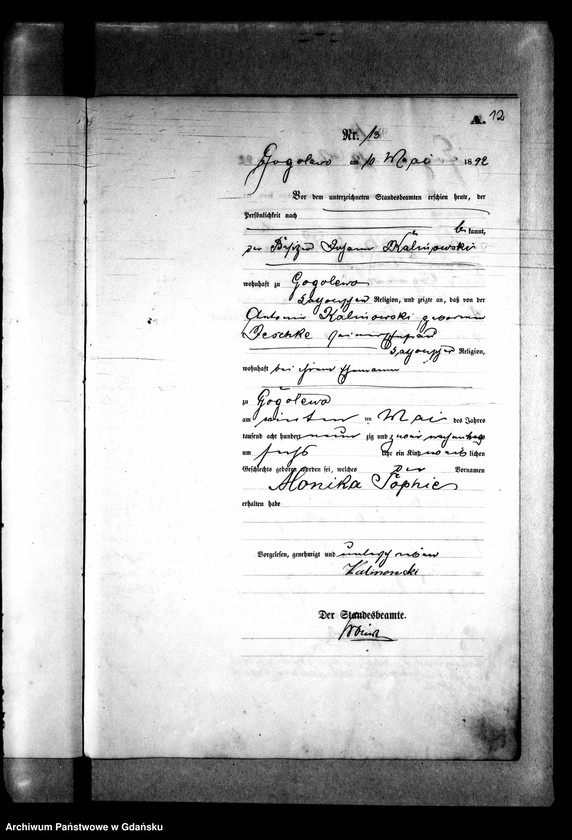 A. 12
Nr. 13
Gogolewo am 10 Mai 1892
Vor dem unterzeichneten Standesbeamten erschien heute, der
Persönlichkeit nach
bekannt,
der Besitzer Johann Kalinowski
wohnhaft zu Gogolewo
katholischer Religion, und zeigte an, daß von der
Antonie Kalinowski geborenen
Jeschke seiner Ehefrau
katholischer Religion,
wohnhaft bei ihrem Ehemanne
zu Gogolewo
am ten Mai des Jahres
tausend acht hundert neun zig und zwei nachmittags
um sechs Uhr ein Kind weiblichen
Geschlechts geboren worden sei, welches die Vornamen
Monika Sophie
erhalten habe
Vorgelesen, genehmigt und unterschrieben
Kalinowski
Der Standesbeamte.
Archiwum Państwowe w Gdańsku